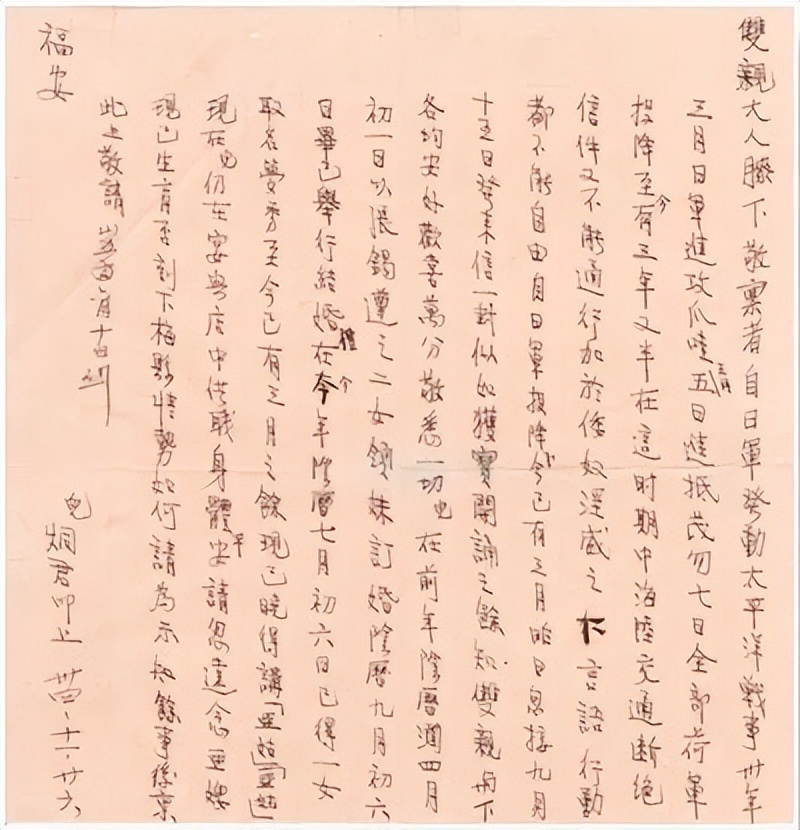 雙親大人膝下敬禀者自日軍發動太平洋戰事卅年
三月日軍進攻爪哇三月五日進抵茂勿七日全部荷軍
投降至今有三年又半在這时期中海陸交通断絶
信件又不能通行加於倭奴淫威之下言語行動
都不能自由自日軍投降今已有三月昨日忽接九月
十五日發来信一封似如獲寶開誦之餘知雙親丹下
各均安好歡喜萬分敬悉一切兒在前年陰曆潤四月
初一日以張錫遵之二女領妹訂婚陰曆九月初六
日畢已舉行結婚禮在今年陰曆七月初六日已得一女
取名學秀至今已有三月之餘現已曉得講「亞姑」「亞姑」
現在兒仍在宴興店中供職身體平安請忽遠念亞嫂
現已生育否刻下梅縣情勢如何請為示知餘事後禀
此上敬請
福安
兒烱君叩上 卅四、十一、廿六